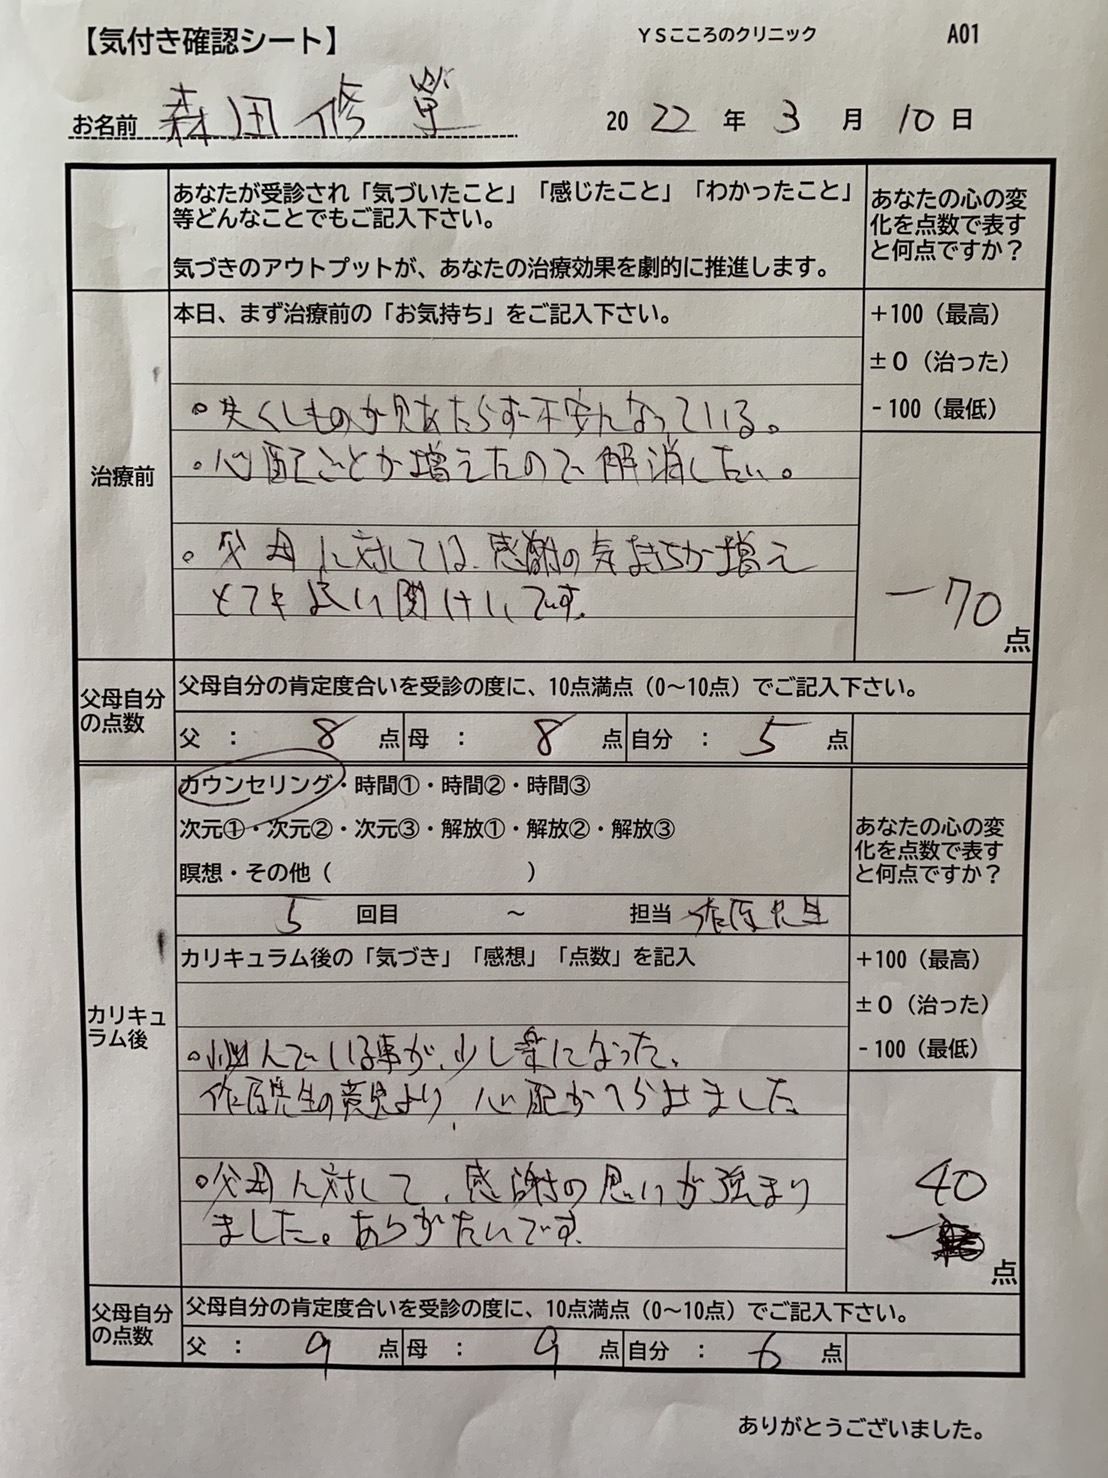 【気付き確認シート】 YSこころのクリニック A01
お名前 森田 修 2022年3月10日
あなたが受診され「気づいたこと」「感じたこと」「わかったこと」
等どんなことでもご記入下さい。
気づきのアウトプットが、あなたの治療効果を劇的に推進します。
あなたの心の変
化を点数で表す
と何点ですか？
治療前
本日、まず治療前の「お気持ち」をご記入下さい。
+100（最高）
±0（治った）
-100（最低）
。失くしものが見あたらず不安になっている。
。心配ごとが増えたので解消したい。
。父母に対しては、感謝の気持ちが増え
とても良い関けいです。
-70点
父母自分
の点数
父母自分の肯定度合いを受診の度に、10点満点（0〜10点）でご記入下さい。
父：8点 母：8点 自分：5点
カウンセリング・時間①・時間②・時間③
次元①・次元②・次元③・解放①・解放②・解放③
瞑想・その他（ ）
あなたの心の変
化を点数で表す
と何点ですか？
5回目 〜 担当 作原先生
カリキュ
ラム後
カリキュラム後の「気づき」「感想」「点数」を記入
+100（最高）
±0（治った）
-100（最低）
。悩んでいる事が、少し楽になった、
作原先生の意見より、心配がへらせました
。父母に対して、感謝の思いが強まり
ました。ありがたいです
40
-点
父母自分
の点数
父母自分の肯定度合いを受診の度に、10点満点（0〜10点）でご記入下さい。
父：9点 母：9点 自分：6点
ありがとうございました。